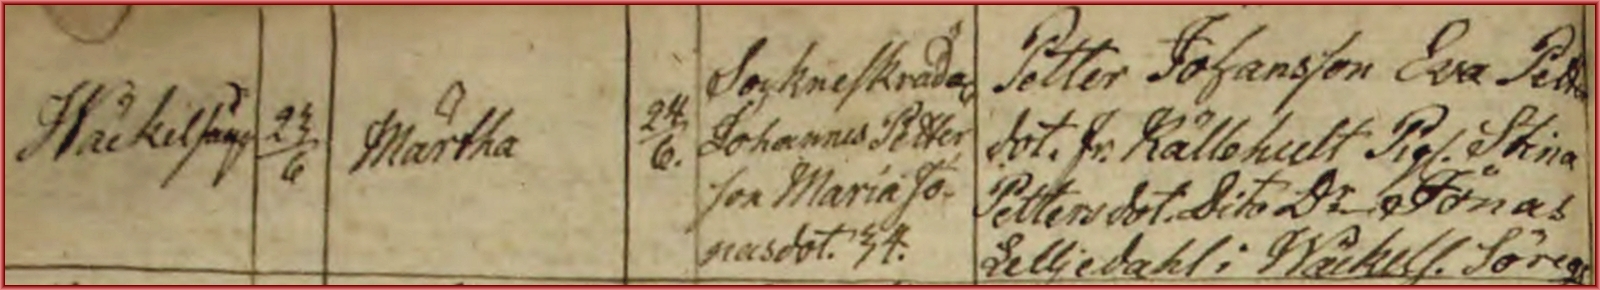 Wäckelsång 23/6 Märtha 24/6.
Sockneskräda
Johannes Petter
son Maria Jo-
nasdot. 34.
Petter Johansson Eva Petters
dot. fr. Källehult Pig. Stina
Petters dot. Dito Dr. Jonas
Lilljedahl i Wäckels. Söreg